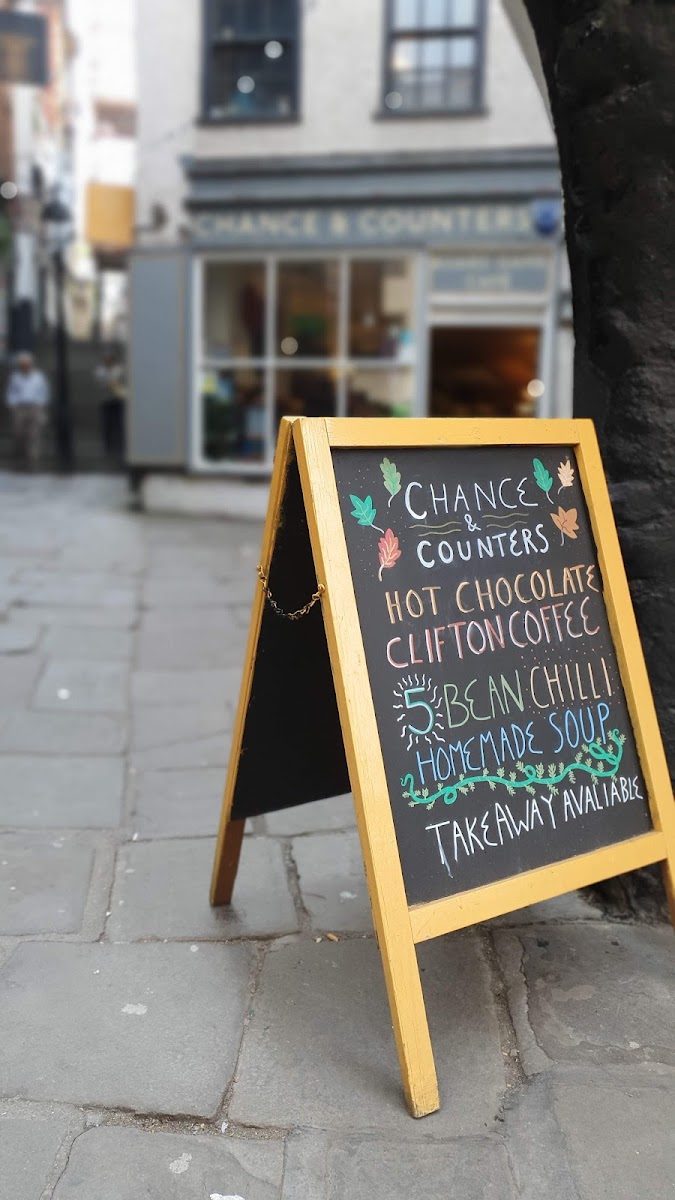 CHANCE & COUNTERS
CHANCE
&
COUNTERS
HOT CHOCOLATE
CLIFTON COFFEE
5 BEAN CHILLI
HOMEMADE SOUP
TAKEAWAY AVALIABLE